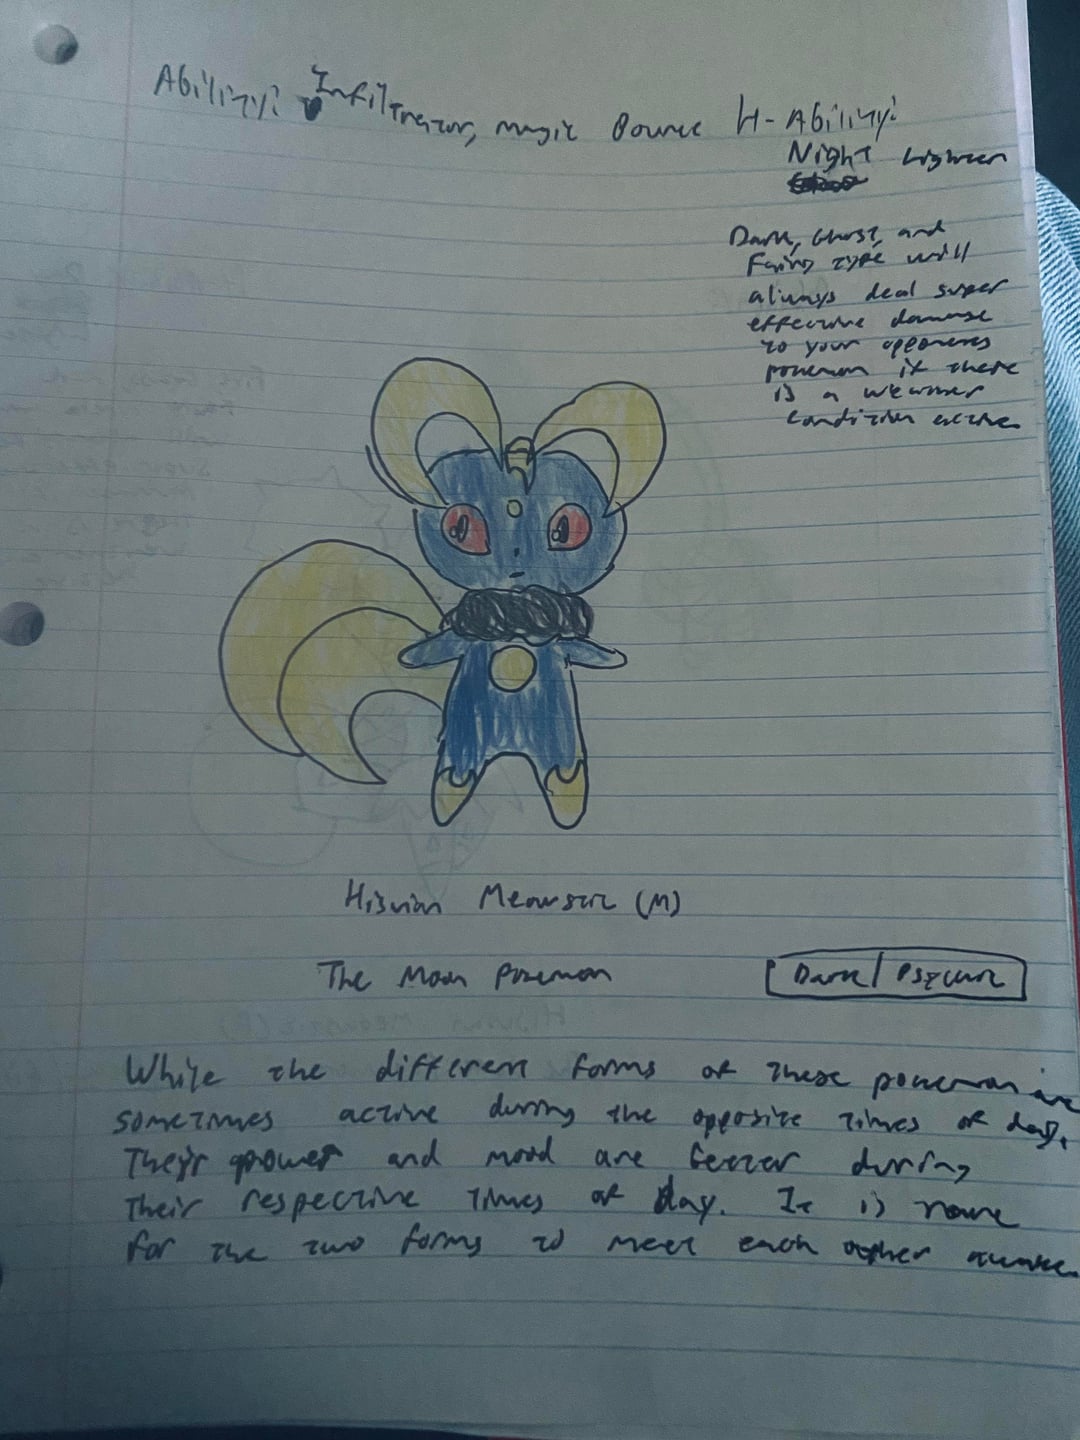 Ability: Infiltrator, Magic Bounce H-Ability:
Night Lighten
Dark, Ghost, and
Fairy type will
always deal super
effective damage
to your opponents
pokemon if there
is a weather
condition active.
Hisuian Meowstic (M)
The Moon Pokemon
Dark/Psychic
While the different forms of these pokemon are
sometimes active during the opposite times of day,
Their power and mood are better during
their respective times of day. It is rare
for the two forms to meet each other awake.